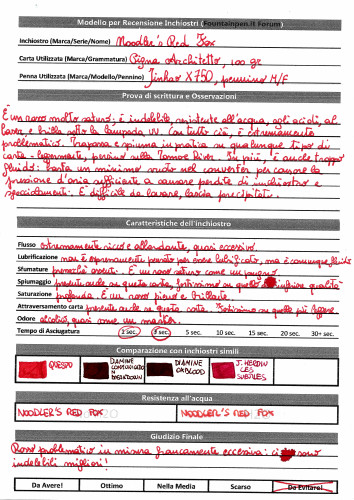 Modello per Recensione Inchiostri (Fountainpen.it Forum)
Inchiostro (Marca/Serie/Nome) Noodler's Red Fox
Carta Utilizzata (Marca/Grammatura) Pigna Architetto, 100 gr
Penna Utilizzata (Marca/Modello/Pennino) Jinhao X750, pennino M/F
Prova di scrittura e Osservazioni
È un rosso molto saturo; è indelebile, resistente all'acqua, agli acidi, al
e brilla sotto la lampada UV. Con tutto ciò, è estremamente
problematico. Trapassa e spiuma in pratica su qualunque tipo di
carta - leggermente, persino sulla Tomoe River. In più, è anche troppo
fluido: basta un minimo vuoto nel converter per causare la
pressione d'aria sufficiente a causare perdite di inchiostro e
sgocciolamenti. È difficile da lavare, lascia precipitati.
Caratteristiche dell'inchiostro
Flusso estremamente ricco e abbondante, quasi eccessivo.
Lubrificazione non è espressamente pensato per essere lubrificato, ma è comunque fluido
Sfumature pressoché assenti. È un rosso saturo come un pugno
Spiumaggio presente anche su questa carta, fortissimo su quelle di inferiore qualità
Saturazione profonda. È un rosso pieno e brillante.
Attraversamento carta presente anche su questa carta. Fortissimo su quelle più leggere
Odore alcolico, quasi come un marker.
Tempo di Asciugatura 1 sec. 3 sec. 5 sec. 10 sec. 15 sec. 20 sec. 30+ sec.
Comparazione con inchiostri simili
QUESTO
DIAMINE
DIAMINE OXBLOOD
J. HERBIN LES SUBTILES
Resistenza all'acqua
NOODLER'S RED FOX NOODLER'S RED FOX
Giudizio Finale
Rosso problematico in misura francamente eccessiva: ci sono
indelebili migliori!
Da Avere! Ottimo Nella Media Scarso Da Evitare!